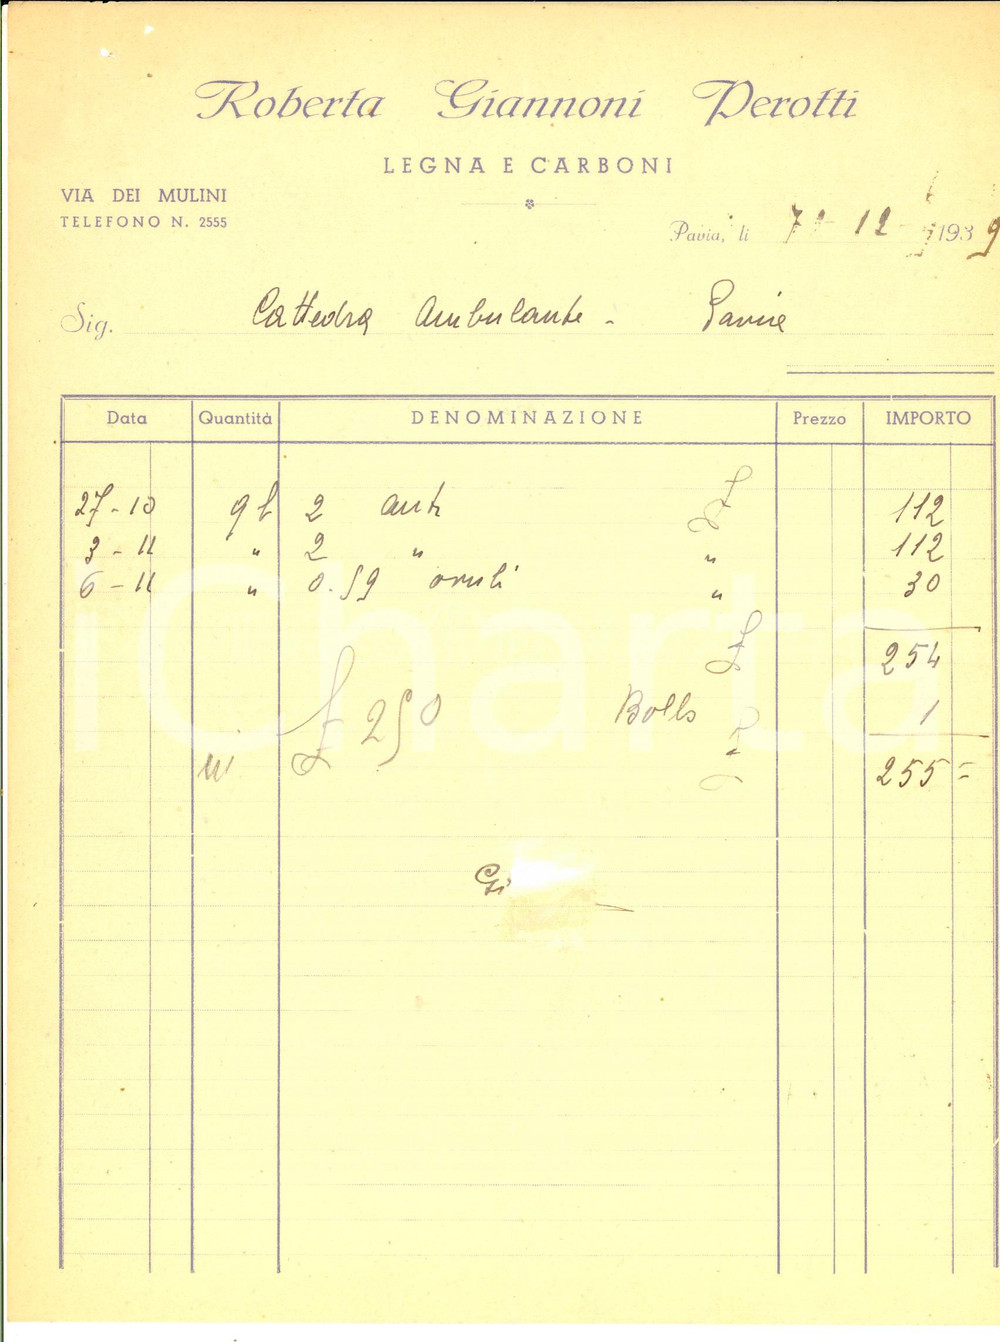 Roberta Giannoni Perotti
LEGNA E CARBONI
VIA DEI MULINI
TELEFONO N. 2555
Pavia, li 7 - 12 - 1939
Sig. Cattedra Ambulante - Pavia
Data Quantità DENOMINAZIONE Prezzo IMPORTO
27-10 ql 2 £ 112
3-11 " 2 " " 112
6-11 " 0.59 ovuli " 30
£ 254
£ 250 Bollo 1
255=
iCharta